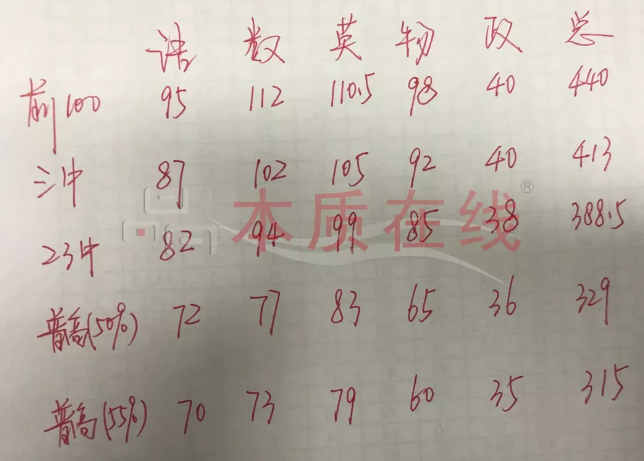 语 数 英 物 政 总
前100 95 112 110.5 98 40 440
三中 87 102 105 92 40 413
本质在线®
23中 82 94 99 85 38 388.5
普高(50%) 72 77 83 65 36 329
普高(55%) 70 73 79 60 35 315